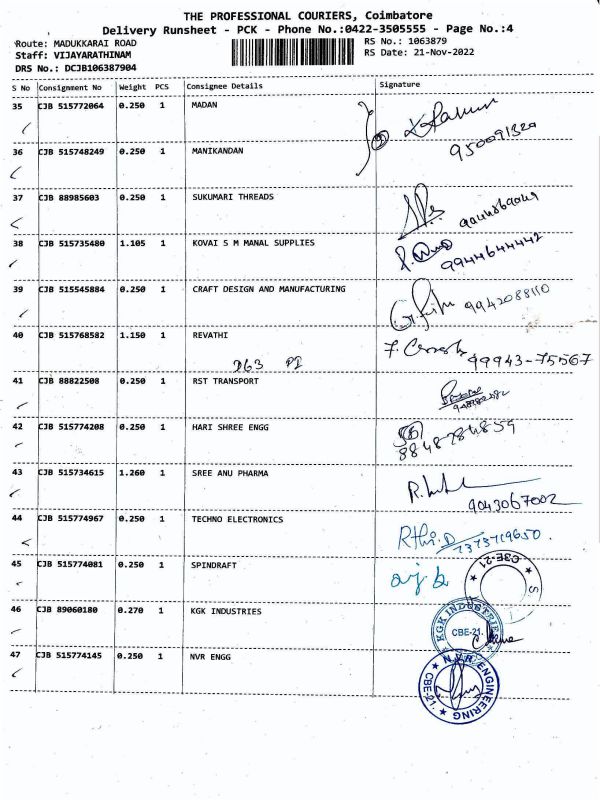 THE PROFESSIONAL COURIERS, Coimbatore
Delivery Runsheet - PCK - Phone No.:0422-3505555 - Page No.:4
Route: MADUKKARAI ROAD
RS No.: 1063879
Staff: VIJAYARATHINAM
RS Date: 21-Nov-2022
DRS No.: DCJB106387904
S No Consignment No Weight PCS Consignee Details Signature
35 CJB 515772064 0.250 1 MADAN
36 CJB 515748249 0.250 1 MANIKANDAN
37 CJB 88985603 0.250 1 SUKUMARI THREADS
38 CJB 515735480 1.105 1 KOVAI S M MANAL SUPPLIES
9944644442
39 CJB 515545884 0.250 1 CRAFT DESIGN AND MANUFACTURING
9942088110
40 CJB 515768582 1.150 1 REVATHI
D63 PI
99943-75567
41 CJB 88822508 0.250 1 RST TRANSPORT
42 CJB 515774208 0.250 1 HARI SHREE ENGG
43 CJB 515734615 1.260 1 SREE ANU PHARMA
9043067002
44 CJB 515774967 0.250 1 TECHNO ELECTRONICS
45 CJB 515774081 0.250 1 SPINDRAFT
CBE-21
46 CJB 89060180 0.270 1 KGK INDUSTRIES
KGK INDUSTRIES
CBE-21.
47 CJB 515774145 0.250 1 NVR ENGG
N.V.R ENGINEERING
CBE-21.